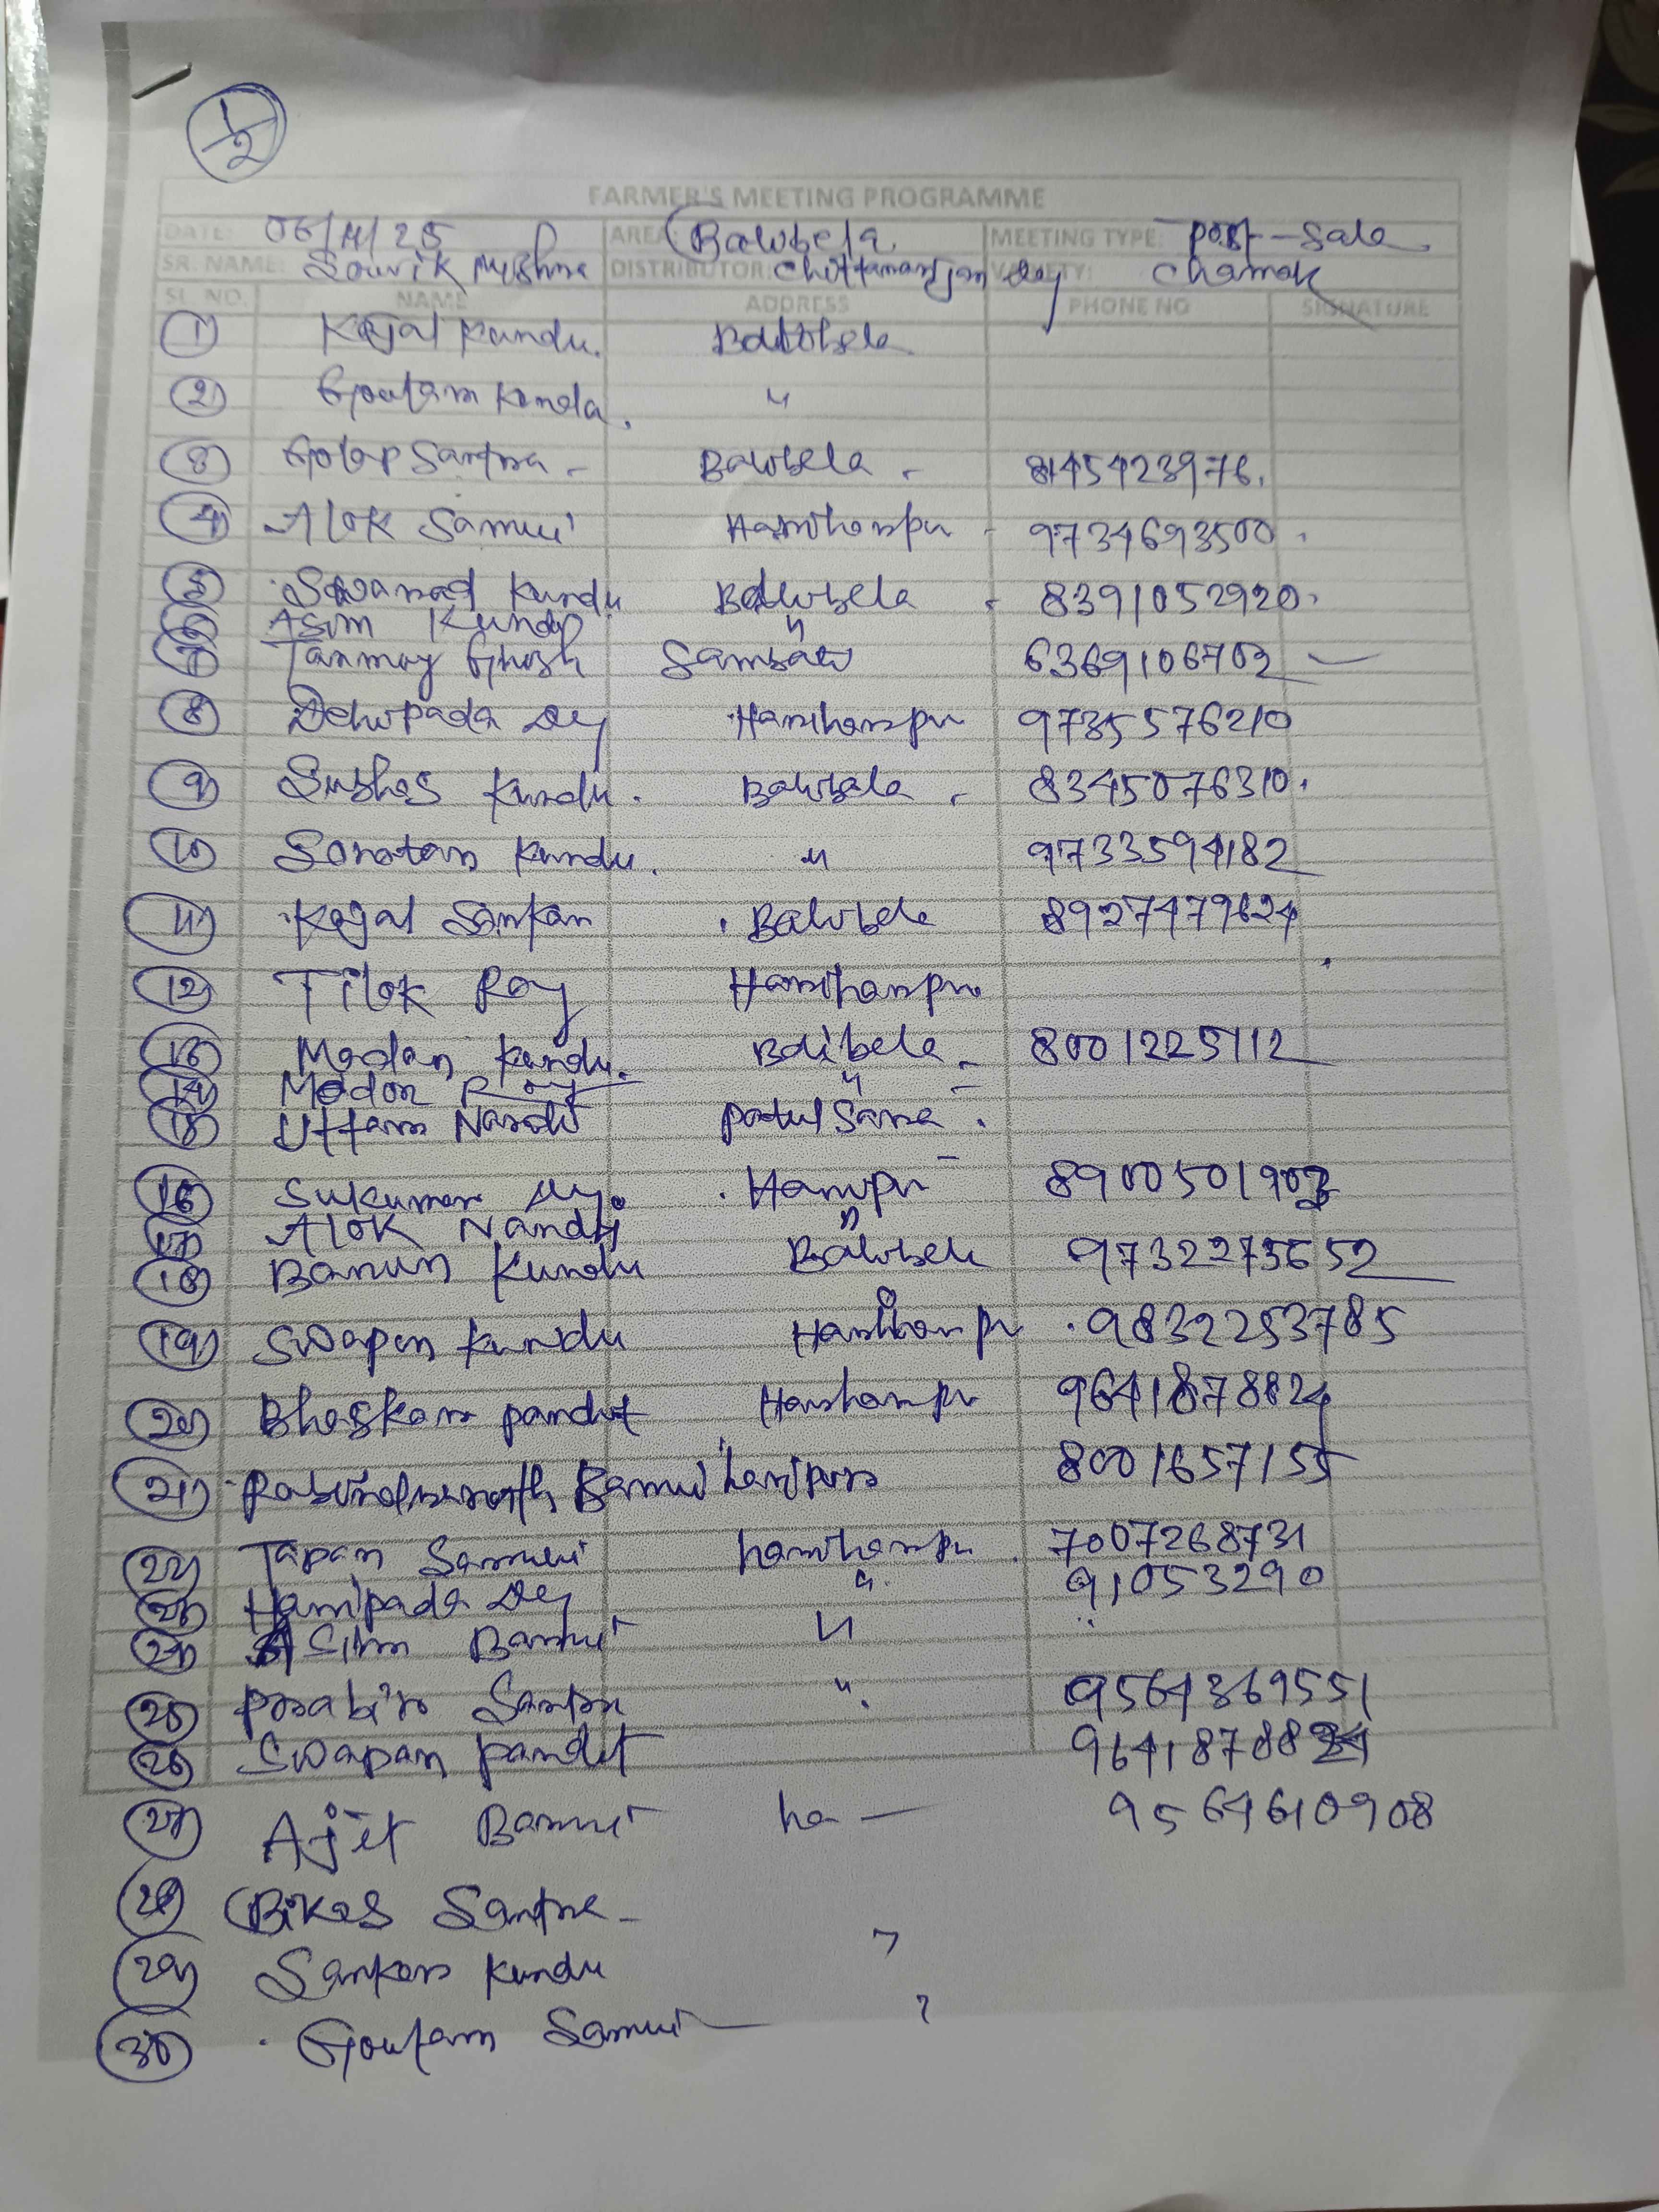 1/2
FARMER'S MEETING PROGRAMME
DATE: 06/11/25 AREA: Balibela MEETING TYPE: post-Sale
SR. NAME: Souvik Mishra DISTRIBUTOR: Chittaranjan Dey VARIETY: Chamak
SL. NO. NAME ADDRESS PHONE NO SIGNATURE
1) Kajal Kundu. Balibela
2) Goutam Kundu. "
3) Golap Santra - Balibela - 8145423976.
4) Alok Samui Hariharpur - 9734693500.
5) Kundu Balibela - 8391052920.
6) Asim Kundu "
7) Tanmoy Ghosh 6369106702 —
8) Debupada Dey Hariharpur 9735576210
9) Subhas Kundu. Balibela - 8345076310.
10) Sanatan Kundu. " 9733594182
11) Kajal Santra Balibela 8927479624
12) Tilok Roy Hariharpur
13) Madan Kundu. Balibela - 8001225112
14) Madon Roy " -
15) Uttam Nandi
16) Sukumar Dey. Haripur 890050190
17) Alok Nandi "
18) Barun Kundu Balibela 9732273652
19) Swapan Kundu Hariharpur 9832253785
20) Bhaskar pandit Hariharpur 9641878824
21) Rabindranath Barui haripur 8001657155
22) Tapan Samui hariharpur. 7007268731
23) Haripada Dey " 91053290
24) Asim Barui "
25) prabir Santra ". 9564369551
26) Swapan pandit 9641878824
27) Ajit Barui ha — 9564610908
28) Bikas Santra -
29) Sankar Kundu "
30) Goutam Samui "